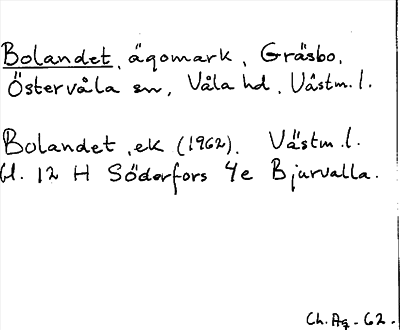 Bolandet, ägomark, Gräsbo,
Östervåla sn, Våla hd, Västm. l.
Bolandet, ek (1962). Västm. l.
bl. 12 H Söderfors 4e Bjurvalla.
Ch. Ag. 62.